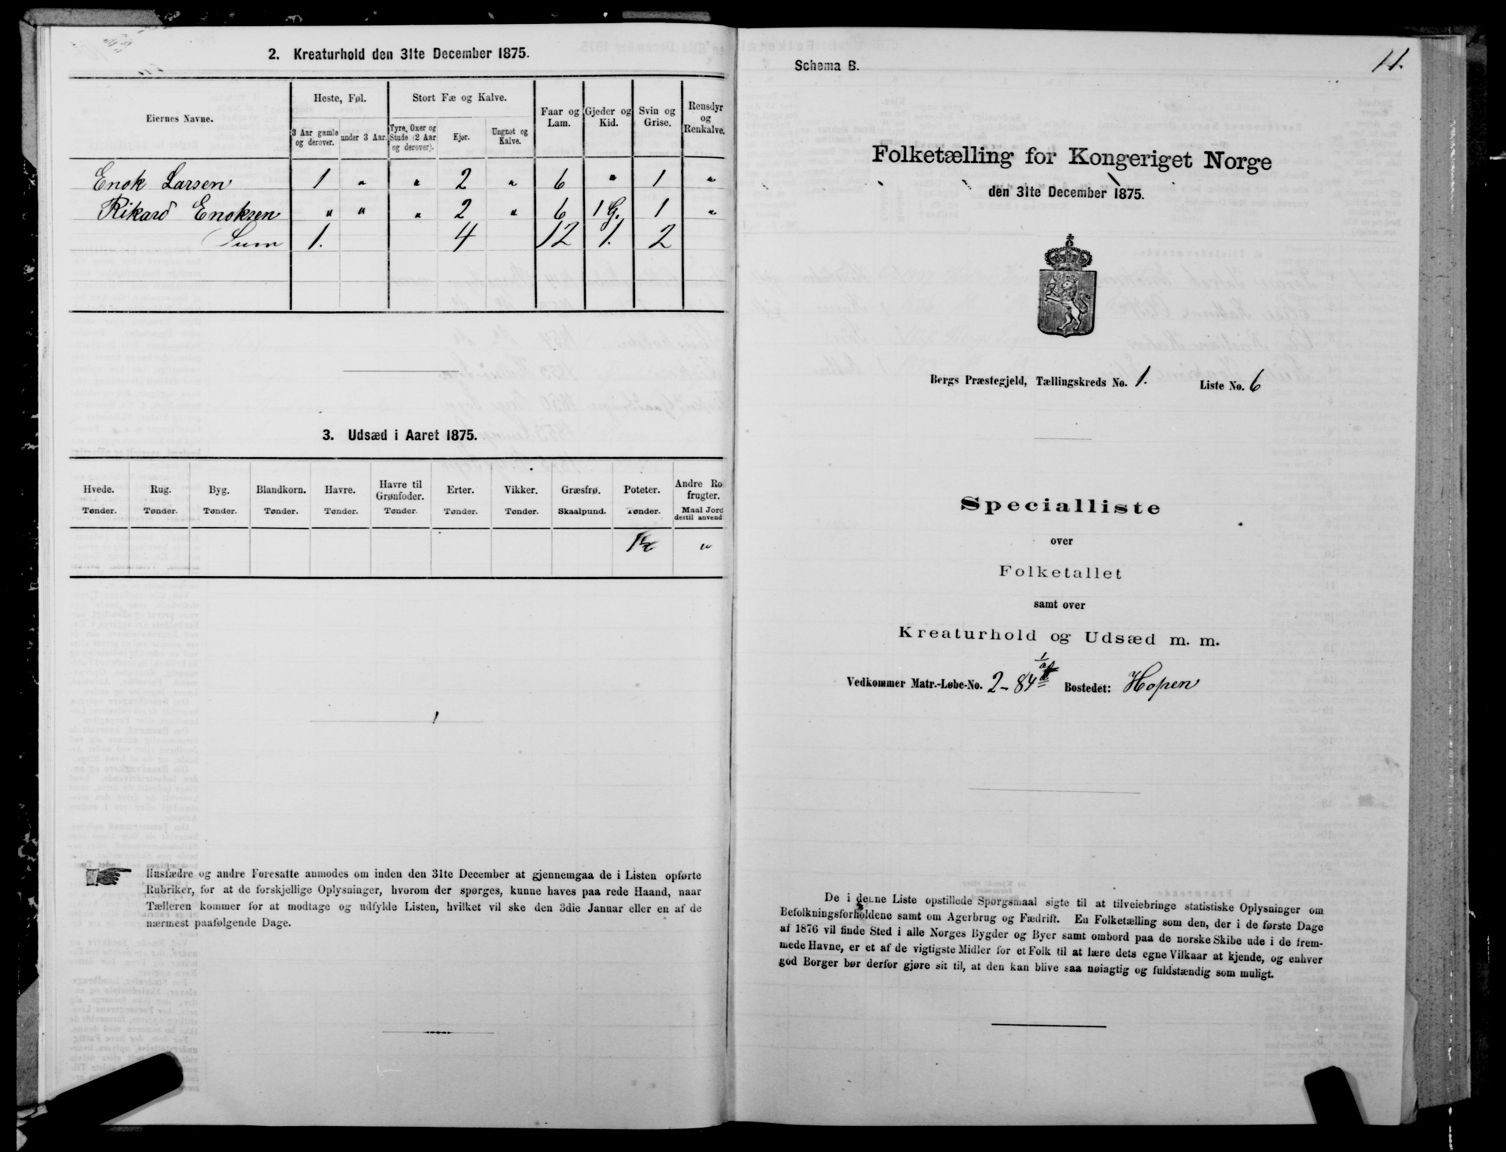 2. Kreaturhold den 31te December 1875.
Eiernes Navne.
Heste, Føl.
Stort Fæ og Kalve.
Faar og Lam.
Gjeder og Kid.
Svin og Grise.
Rensdyr og Renkalve.
3 Aar gamle og derover.
under 3 Aar.
Tyre, Oxer og Stude (2 Aar og derover).
Kjør.
Ungnøt og Kalve.
Enok Larsen 1 " " 2 " 6 " 1 "
Rikard Enoksen " " " 2 " 6 1 G. 1 "
Sum 1. 4 12 1. 2
3. Udsæd i Aaret 1875.
Hvede. Rug. Byg. Blandkorn. Havre. Havre til Grønfoder. Erter. Vikker. Græsfrø. Poteter. Andre Ro frugter.
Tønder. Tønder. Tønder. Tønder. Tønder. Tønder. Tønder. Tønder. Skaalpund. Tønder. Maal Jord destil anvend
1½ "
Husfædre og andre Foresatte anmodes om inden den 31te December at gjennemgaa de i Listen opførte
Rubriker, for at de forskjellige Oplysninger, hvorom der spørges, kunne haves paa rede Haand, naar
Tælleren kommer for at modtage og udfylde Listen, hvilket vil ske den 3die Januar eller en af de
nærmest paafølgende Dage.
Schema B.
11.
Folketælling for Kongeriget Norge
den 31te December 1875.
Bergs Præstegjeld, Tællingskreds No. 1. Liste No. 6
Specialliste
over
Folketallet
samt over
Kreaturhold og Udsæd m. m.
Vedkommer Matr.-Løbe-No. 2-84 Bostedet: Hopen
De i denne Liste opstillede Spørgsmaal sigte til at tilveiebringe statistiske Oplysninger om
Befolkningsforholdene samt om Agerbrug og Fædrift. En Folketælling som den, der i de første Dage
af 1876 vil finde Sted i alle Norges Bygder og Byer samt ombord paa de norske Skibe ude i de frem-
mede Havne, er et af de vigtigste Midler for et Folk til at lære dets egne Vilkaar at kjende, og enhver
god Borger bør derfor gjøre sit til, at den kan blive saa nøiagtig og fuldstændig som muligt.